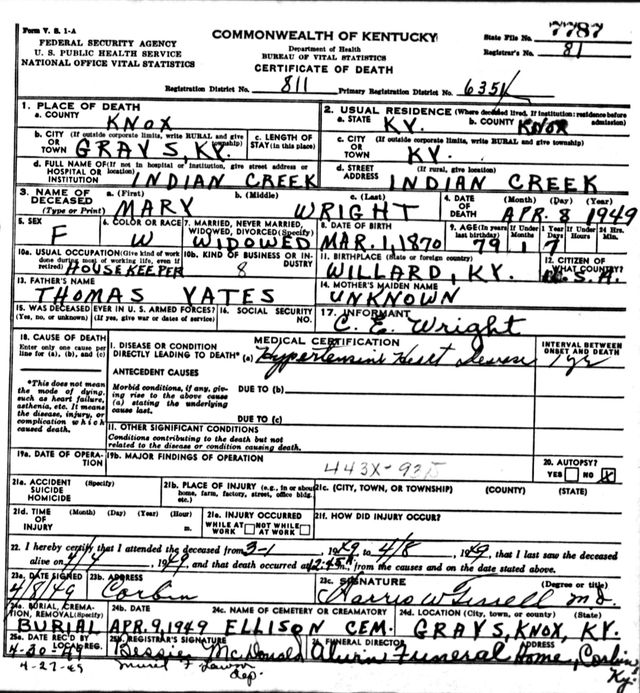 Form V. S. 1-A
FEDERAL SECURITY AGENCY
U. S. PUBLIC HEALTH SERVICE
NATIONAL OFFICE VITAL STATISTICS
COMMONWEALTH OF KENTUCKY
Department of Health
BUREAU OF VITAL STATISTICS
CERTIFICATE OF DEATH
State File No. 7787
Registrar's No. 81
Registration District No. 811 Primary Registration District No. 6351
1. PLACE OF DEATH
a. COUNTY KNOX
b. CITY (If outside corporate limits, write RURAL and give township) OR TOWN GRAYS, KY.
c. LENGTH OF STAY (in this place)
d. FULL NAME OF (If not in hospital or institution, give street address or location) HOSPITAL OR INSTITUTION INDIAN CREEK
2. USUAL RESIDENCE (Where deceased lived. If institution: residence before admission)
a. STATE KY. b. COUNTY KNOX
c. CITY (If outside corporate limits, write RURAL and give township) OR TOWN KY.
d. STREET ADDRESS (If rural, give location) INDIAN CREEK
3. NAME OF DECEASED (Type or Print) a. (First) MARY b. (Middle) c. (Last) WRIGHT
4. DATE OF DEATH (Month) (Day) (Year) APR. 8 1949
5. SEX F
6. COLOR OR RACE W
7. MARRIED, NEVER MARRIED, WIDOWED, DIVORCED (Specify) WIDOWED
8. DATE OF BIRTH MAR. 1, 1870
9. AGE (In years last birthday) 79 If Under 1 Year Months 1 Days 7 If Under 24 Hrs. Hours Min.
10a. USUAL OCCUPATION (Give kind of work done during most of working life, even if retired) HOUSE KEEPER
10b. KIND OF BUSINESS OR INDUSTRY 8
11. BIRTHPLACE (State or foreign country) WILLARD, KY.
12. CITIZEN OF WHAT COUNTRY? U.S.A.
13. FATHER'S NAME THOMAS YATES
14. MOTHER'S MAIDEN NAME UNKNOWN
15. WAS DECEASED EVER IN U. S. ARMED FORCES? (Yes, no, or unknown) (If yes, give war or dates of service)
16. SOCIAL SECURITY NO.
17. INFORMANT C. E. Wright
18. CAUSE OF DEATH
Enter only one cause per line for (a), (b), and (c)
*This does not mean the mode of dying, such as heart failure, asthenia, etc. It means the disease, injury, or complication which caused death.
MEDICAL CERTIFICATION
INTERVAL BETWEEN ONSET AND DEATH
I. DISEASE OR CONDITION DIRECTLY LEADING TO DEATH* (a) Hypertensive Heart Disease 1 yr
ANTECEDENT CAUSES
Morbid conditions, if any, giving rise to the above cause (a) stating the underlying cause last.
DUE TO (b)
DUE TO (c)
II. OTHER SIGNIFICANT CONDITIONS
Conditions contributing to the death but not related to the disease or condition causing death.
19a. DATE OF OPERATION
19b. MAJOR FINDINGS OF OPERATION
443X-92
20. AUTOPSY? YES NO X
21a. ACCIDENT SUICIDE HOMICIDE (Specify)
21b. PLACE OF INJURY (e.g., in or about home, farm, factory, street, office bldg., etc.)
21c. (CITY, TOWN, OR TOWNSHIP) (COUNTY) (STATE)
21d. TIME OF INJURY (Month) (Day) (Year) (Hour) m.
21e. INJURY OCCURRED WHILE AT WORK NOT WHILE AT WORK
21f. HOW DID INJURY OCCUR?
22. I hereby certify that I attended the deceased from 3-1, 1949, to 4/8, 1949, that I last saw the deceased
alive on 4/4, 1949, and that death occurred at 12:45 A m., from the causes and on the date stated above.
23a. DATE SIGNED 4/8/49
23b. ADDRESS Corbin
23c. SIGNATURE (Degree or title) Harris W. M.D.
24a. BURIAL, CREMATION, REMOVAL (Specify) BURIAL
24b. DATE APR. 9, 1949
24c. NAME OF CEMETERY OR CREAMATORY ELLISON CEM.
24d. LOCATION (City, town, or county) (State) GRAYS, KNOX, KY.
25a. DATE REC'D BY LOCAL REG. 4-30-49
25b. REGISTRAR'S SIGNATURE Bessie McDonald
26. FUNERAL DIRECTOR ADDRESS Funeral Home, Corbin, Ky.
4-27-49
dep.